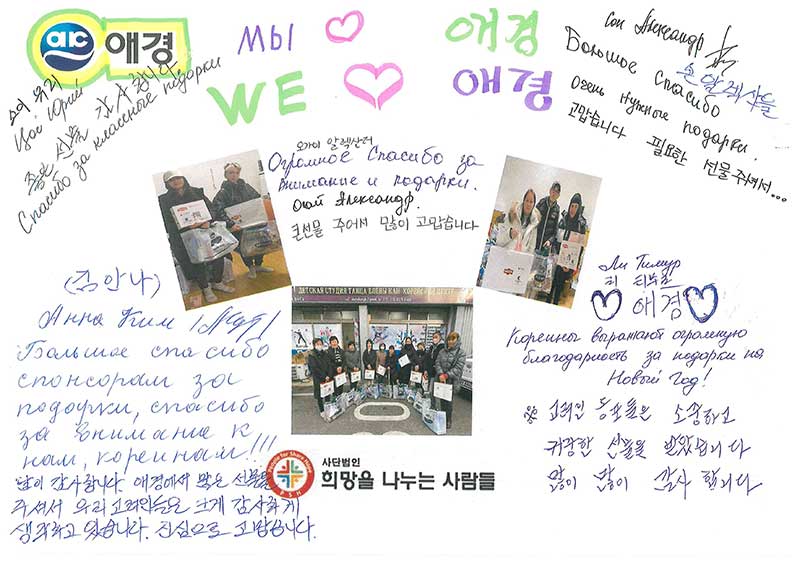 애경
МЫ ♡ 애경
WE ♡ 애경
Цой Юрий
좋은 선물 감사합니다
Спасибо за классные подарки
Сон Александр
손 알렉산들
Большое спасибо
Очень нужные подарки.
고맙습니다 필요한 선물 주셔서...
오가이 알렉산더
Огромное спасибо за
внимание и подарки.
Огай Александр.
큰선물 주어서 많이 고맙습니다
(김안나)
Анна Ким
Большое спасибо
спонсорам за
подарки, спасибо
за внимание к
нам, корейцам!!!
많이 감사합니다. 애경에서 많은 선물을
주셔서 우리 고려인들은 크게 감사하게
생각하고 있습니다. 진심으로 고맙습니다.
ДЕТСКАЯ СТУДИЯ ТАНЦА ЕЛЕНЫ КАН
People for Share Hope
PSH
사단법인
희망을 나누는 사람들
Ли Тимур
리 티무르
♡ 애경 ♡
Корейцы выражают огромную
благодарность за подарки на
Новый Год!
고려인 동포들은 소중하고
귀중한 선물을 받았습니다
많이 많이 감사 합니다